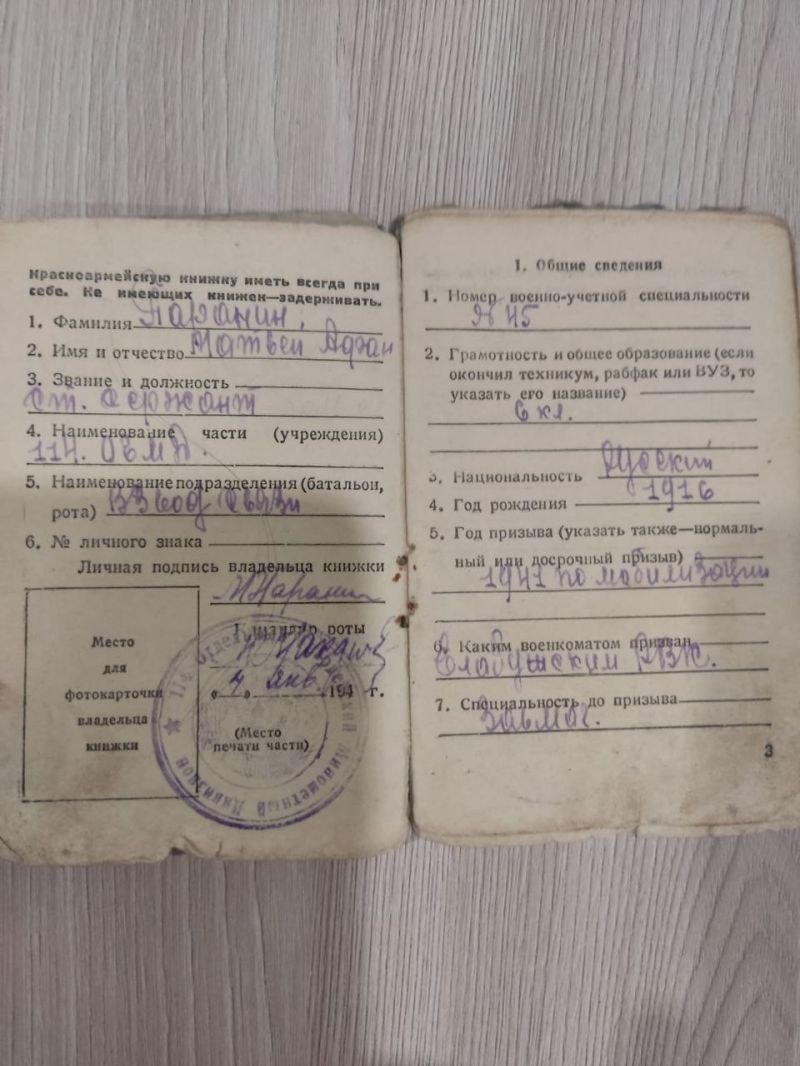 Красноармейскую книжку иметь всегда при
себе. Не имеющих книжек—задерживать.
1. Фамилия Паранин
2. Имя и отчество Матвей
3. Звание и должность
Ст. Сержант
4. Наименование части (учреждения)
117. ОВМП.
5. Наименование подразделения (батальон,
рота) Взвод связи
6. № личного знака
Личная подпись владельца книжки
Командир роты
Место
для
фотокарточки
владельца
книжки
" " 194 г.
(Место
печати части)
Минометный Дивизион
1. Общие сведения
1. Номер военно-учетной специальности
№ 45
2. Грамотность и общее образование (если
окончил техникум, рабфак или ВУЗ, то
указать его название)
6 кл.
3. Национальность Русский
4. Год рождения 1916
5. Год призыва (указать также—нормаль-
ный или досрочный призыв)
1941 по мобилизации
6. Каким военкоматом призван
РВК.
7. Специальность до призыва
3